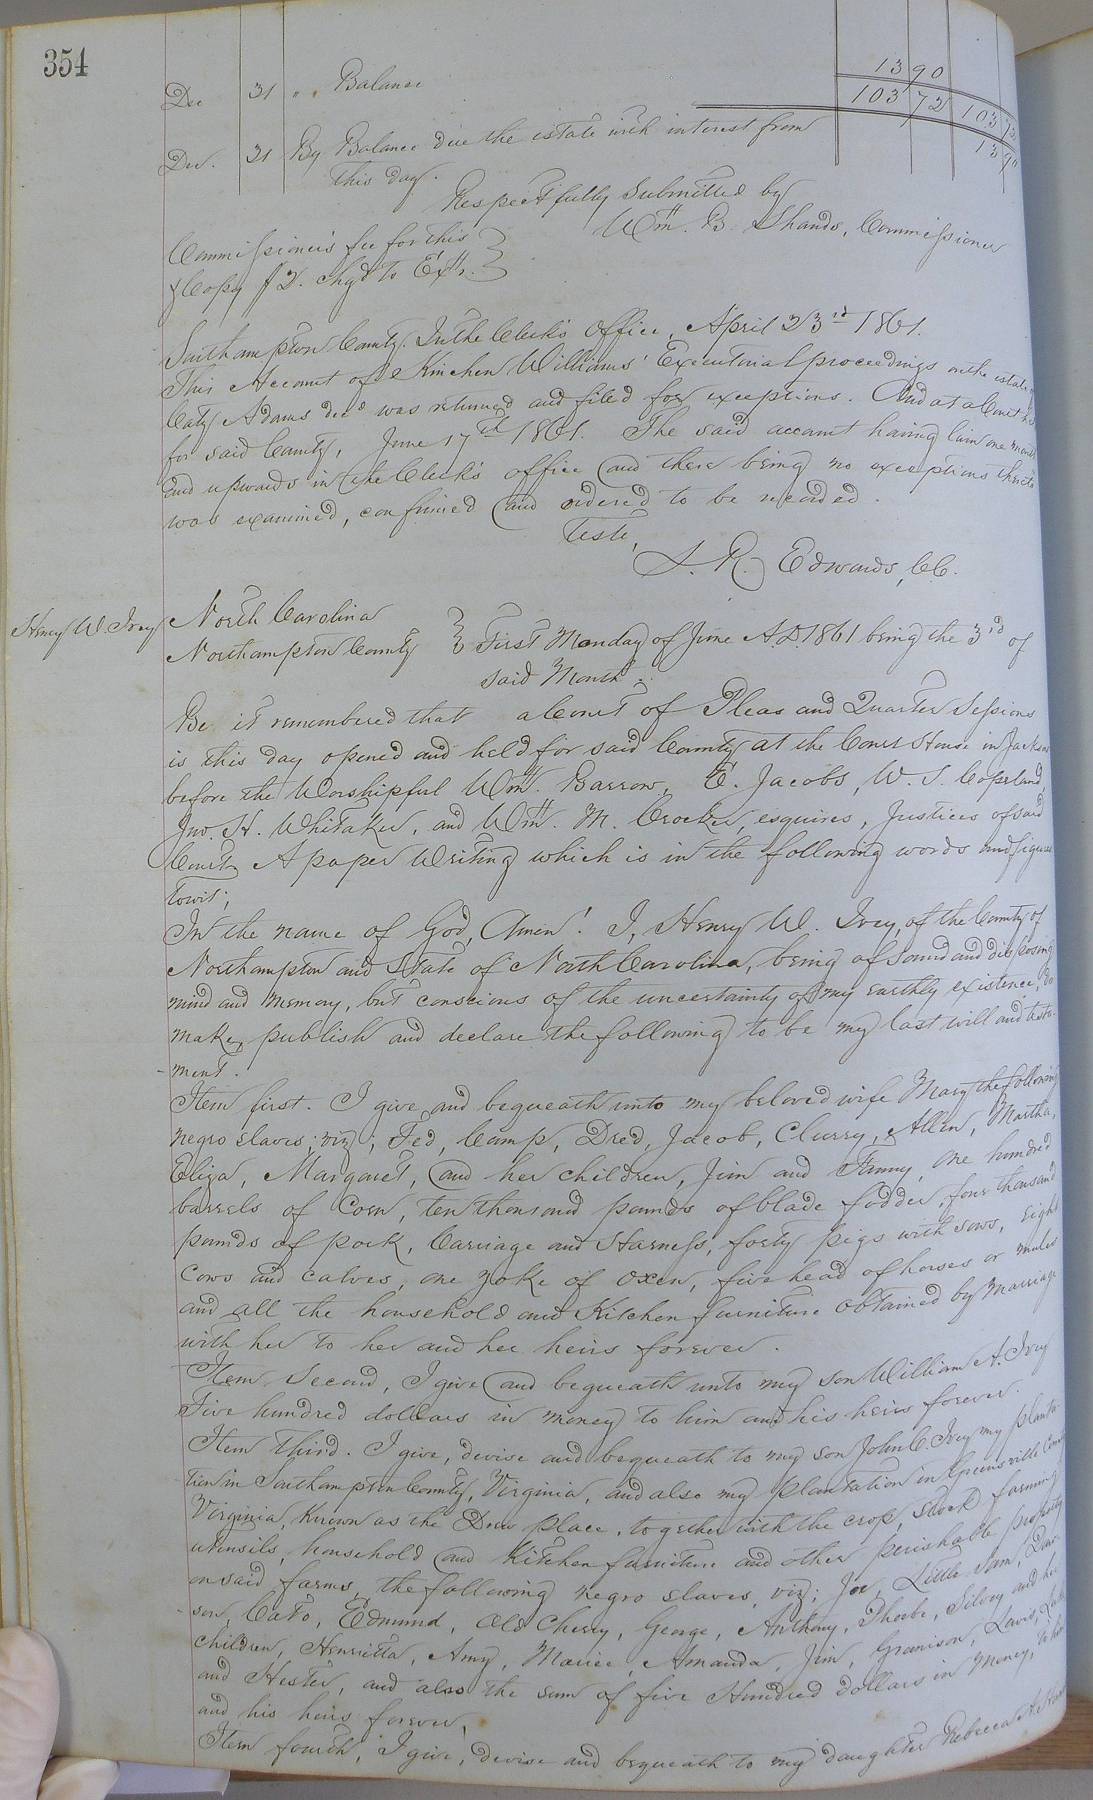 354
Dec 31 " " Balance 13 90
103 72 103 72
Dec. 31 By Balance due the estate with interest from 13 90
this day.
Respectfully Submitted by
Wm. B. Shands, Commissioner
Commissioner's fee for this
& Copy $2. chgd to Exr.
Southampton County. In the Clerk's Office, April 23rd 1861.
This Account of Kinchen Williams' Executorial proceedings on the estate of
Caty Adams decd was returned and filed for exceptions. And at a Court
for said County, June 17th 1861. The said account having lain one month
and upwards in the Clerk's office and there being no exceptions thereto
was examined, confirmed and ordered to be recorded.
Teste,
L. R. Edwards, CC.
Henry W. Ivey
North Carolina
Northampton County } First Monday of June A.D. 1861 being the 3rd of
said Month.
Be it remembered that a Court of Pleas and Quarter Sessions
is this day opened and held for said County at the Court House in Jackson
before the Worshipful Wm. Barrow, E. Jacobs, W. S. Copeland
Jno. H. Whitaker, and Wm. M. Crocker, esquires, Justices of said
Court, A paper writing which is in the following words and figures
towit;
In the name of God, Amen! I, Henry W. Ivey, of the County of
Northampton and State of North Carolina, being of sound and disposing
mind and memory, but conscious of the uncertainty of my earthly existence, do
make, publish and declare the following to be my last will and testa-
-ment.
Item first. I give and bequeath unto my beloved wife Mary the following
negro slaves; viz; Ted, Camp, Dred, Jacob, Clurry, Allen, Martha,
Eliza, Margaret, and her children, Jim and Fanny, One hundred
barrels of Corn, ten thousand pounds of blade fodder, four thousand
pounds of pork, Carriage and Harness, forty pigs with sows, eight
Cows and calves, one yoke of oxen, five head of horses or mules
and all the household and Kitchen furniture obtained by Marriage
with her to her and her heirs forever.
Item Second, I give and bequeath unto my son William A. Ivey
Five hundred dollars in money to him and his heirs forever.
Item third. I give, devise and bequeath to my son John C. Ivey my planta-
-tion in Southampton County, Virginia, and also my plantation in Greensville County
Virginia, Known as the Drew place, together with the crop, stock farming
utensils, household and Kitchen furniture and other perishable property
on said farms, the following negro slaves, viz; Joe, Little Sam, Daw-
-son, Cato, Edmund, Old Cherry, George, Anthony, Phoebe, Silvey and her
children, Henrietta, Amy, Mariee, Amanda, Jim, Granison, Lewis,
and Hester, and also the sum of five Hundred dollars in money, to him
and his heirs forever,
Item fourth, I give, devise and bequeath to my daughter Rebecca A.